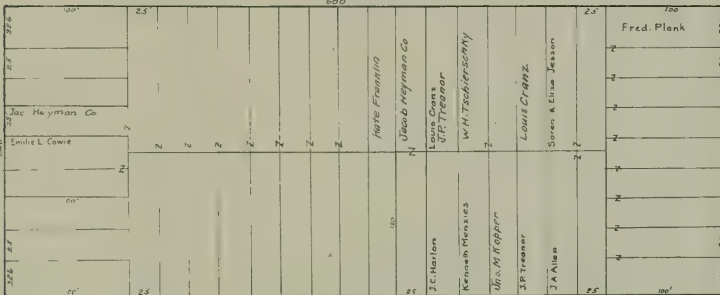 100'
600
100
25
25
Fred. Plank
32.6
25
25
Jac Heyman Co
Emilie L Cowie
Kate Franklin
Jacob Heyman Co
Louis Cranz
J.P. Treanor
W.H. Tschierschky
Louis Cranz
Soren & Eliza Jesson
J.C. Harlon
Kenneth Menzies
Jno. M Kopper
J.P. Treanor
J A Allen
120
25
32.6
25
25
25
100'